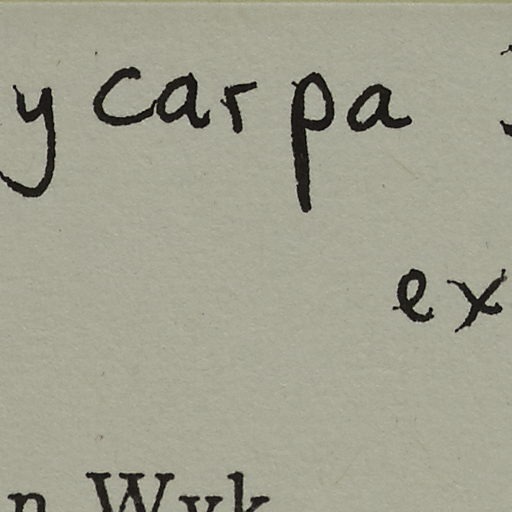 ycarpa
ex
n Wyk